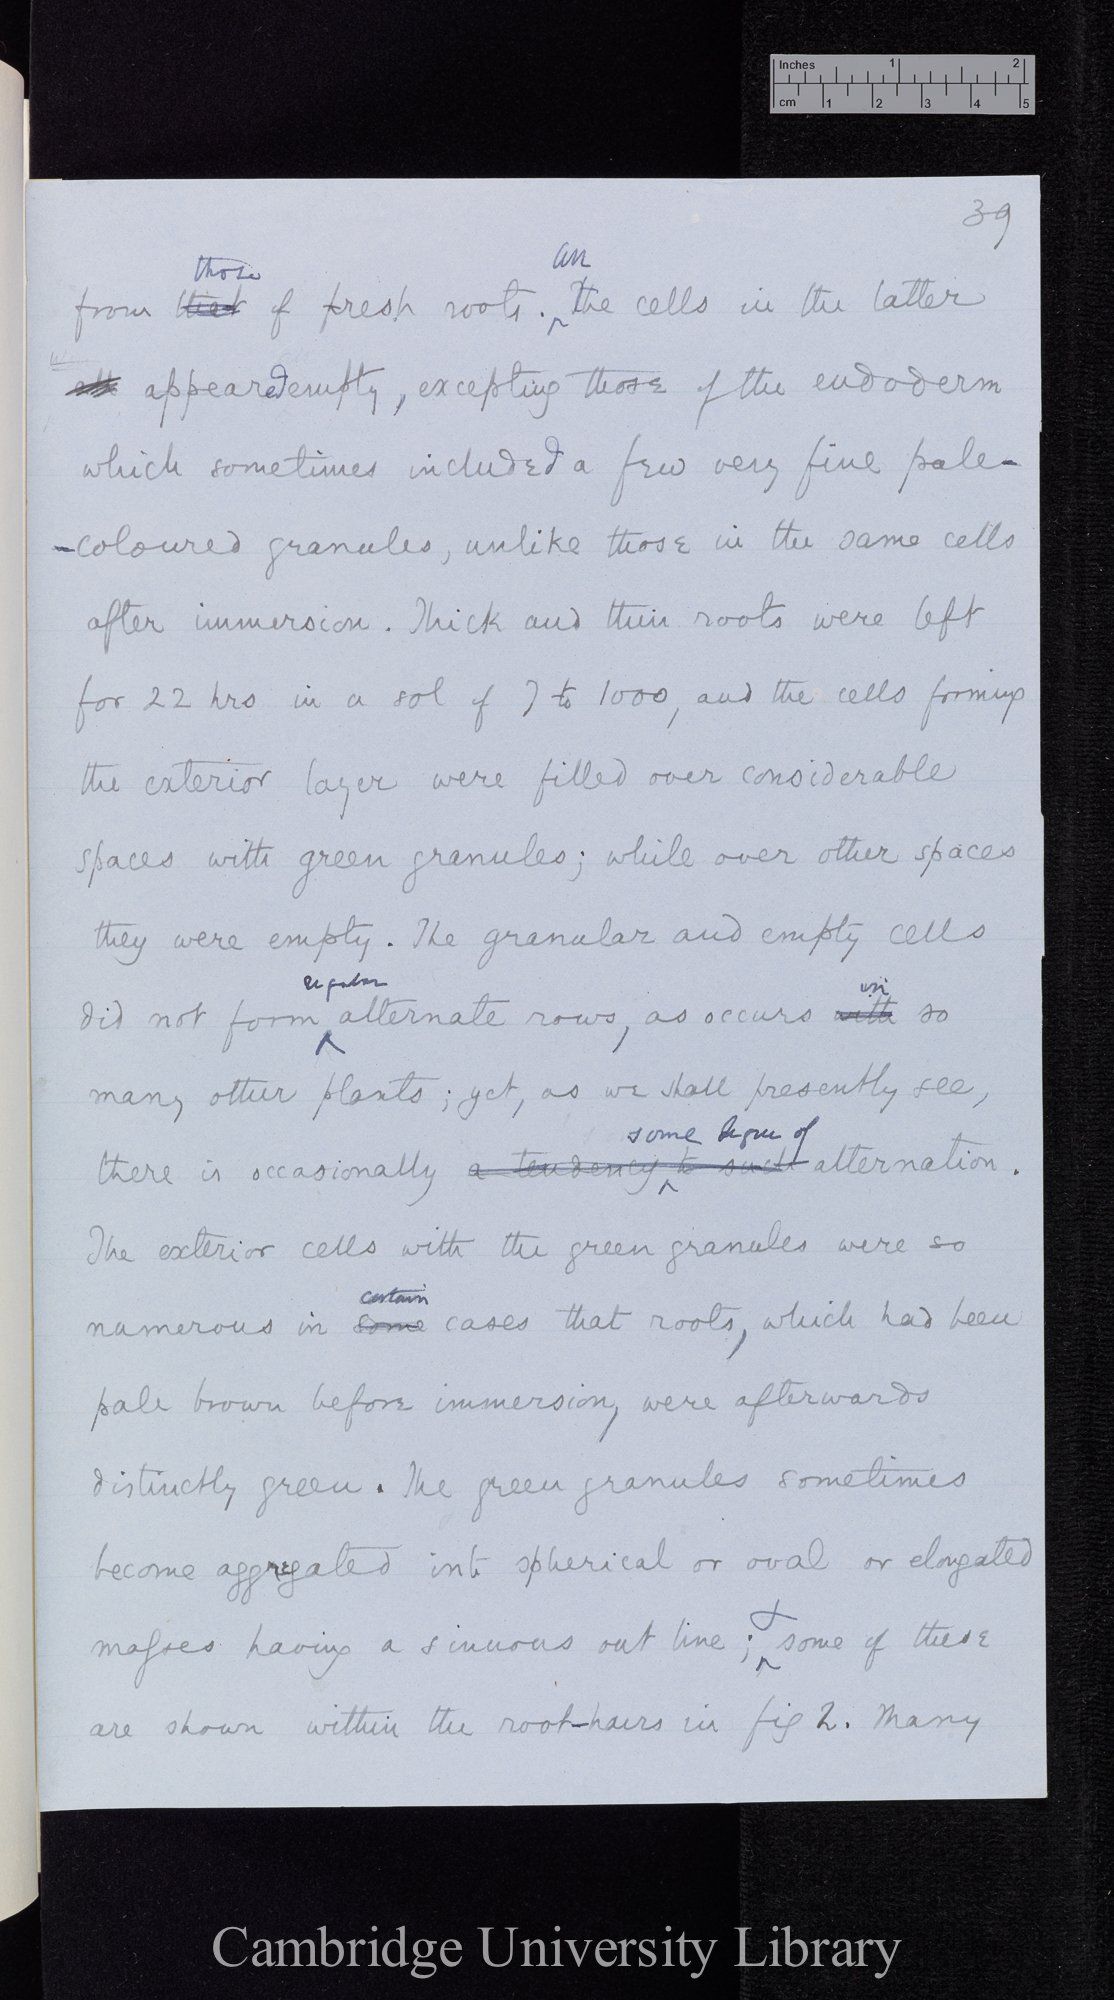 Inches 1 2
cm 1 2 3 4 5
39
those All
from that of fresh roots. the cells in the latter
all appeared empty, excepting those of the endoderm
which sometimes included a few very fine pale-
-coloured granules, unlike those in the same cells
after immersion. Thick and thin roots were left
for 22 hrs in a sol of 7 to 1000, and the cells forming
the exterior layer were filled over considerable
spaces with green granules; while over other spaces
they were empty. The granular and empty cells
regular in
did not form alternate rows, as occurs with so
many other plants; yet, as we shall presently see,
some degree of
there is occasionally a tendency to such alternation.
The exterior cells with the green granules were so
certain
numerous in some cases that roots, which had been
pale brown before immersion, were afterwards
distinctly green. The green granules sometimes
become aggregated into spherical or oval or elongated
&
masses having a sinuous out line; some of these
are shown within the root-hairs in fig 2. Many
Cambridge University Library